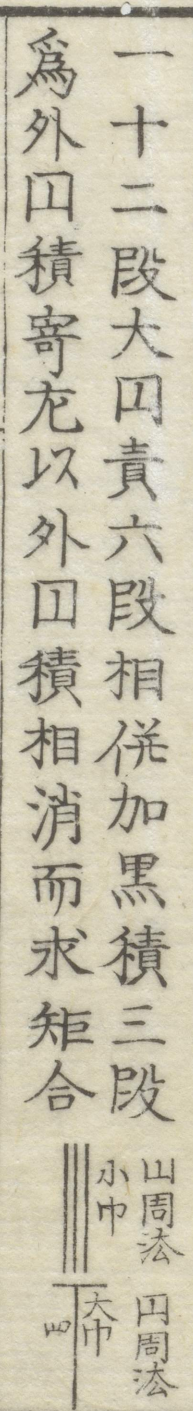 一十二段大円責六段相併加黒積三段
爲外円積寄左以外円積相消而求矩合
円周法
小巾
円周法
大巾
四